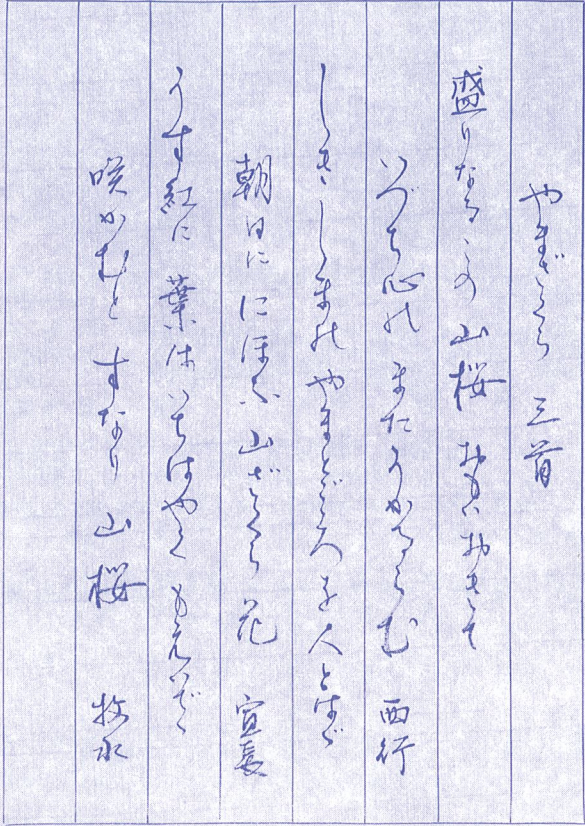 やまざくら 三首
盛りなるこの山桜 おもひおきて
いづち心の またうかるらむ 西行
しきしまの やまとごころを人とはゞ
朝日に にほふ 山ざくら花 宣長
うす紅に 葉はいちはやく もえいでゝ
咲かむと すなり 山桜 牧水